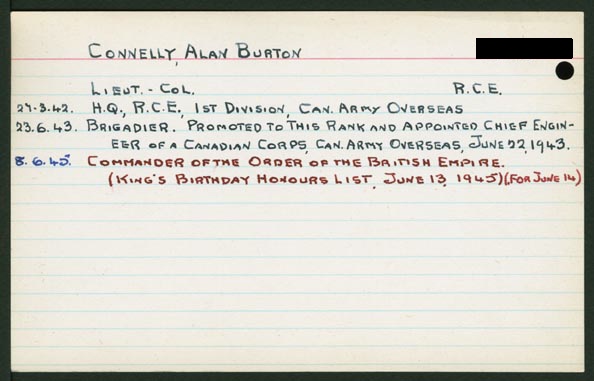 CONNELLY, ALAN BURTON
LIEUT.-COL. R.C.E.
27-3.42. H.Q., R.C.E., 1ST DIVISION, CAN. ARMY OVERSEAS
23.6.43. BRIGADIER. PROMOTED TO THIS RANK AND APPOINTED CHIEF ENGIN-
EER OF A CANADIAN CORPS, CAN. ARMY OVERSEAS, JUNE 22, 1943.
8.6.45. COMMANDER OF THE ORDER OF THE BRITISH EMPIRE.
(KING'S BIRTHDAY HONOURS LIST, JUNE 13, 1945)(FOR JUNE 14)